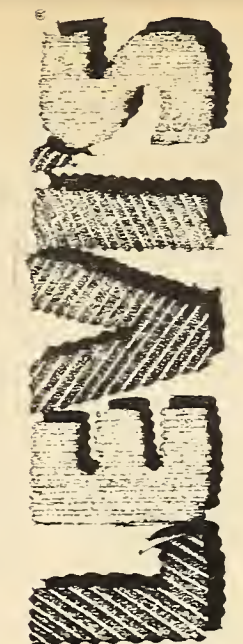 LEVI'S®